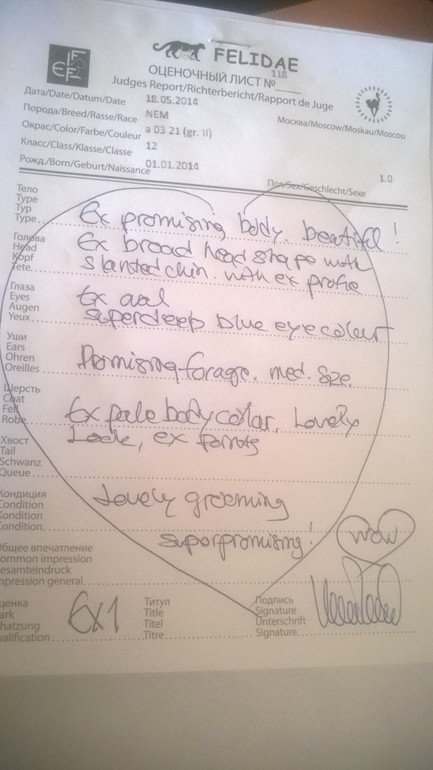 FIFE
FELIDAE
ОЦЕНОЧНЫЙ ЛИСТ № 118
Judges Report/Richterbericht/Rapport de Juge
Дата/Date/Datum/Date 18.05.2014
Москва/Moscow/Moskau/Moscou
Порода/Breed/Rasse/Race NEM
Окрас/Color/Farbe/Couleur a 03 21 (gr. II)
Класс/Class/Klasse/Classe 12
Рожд/Born/Geburt/Naissance 01.01.2014
Пол/Sex/Geschlecht/Sexe 1.0
Тело
Type
Typ
Type
Ex promising body. beatiful!
Голова
Head
Kopf
Tete
Ex broad head shape with
slanted chin with ex profie
Глаза
Eyes
Augen
Yeux
Ex oval
superdeep blue eyecolour
Уши
Ears
Ohren
Oreilles
Promising forage. med. size
Шерсть
Coat
Fell
Robe
Ex pale bodycollar. Lovely
Хвост
Tail
Schwanz
Queue
ex points
Кондиция
Condition
Kondition
Condition
Lovely grooming
superpromising!
wow
Общее впечатление
Common impression
Gesamteindruck
Impression general
Оценка
Mark
Schatzung
Qualification
Ex1
Титул
Title
Titel
Titre
Подпись
Signature
Unterschrift
Signature